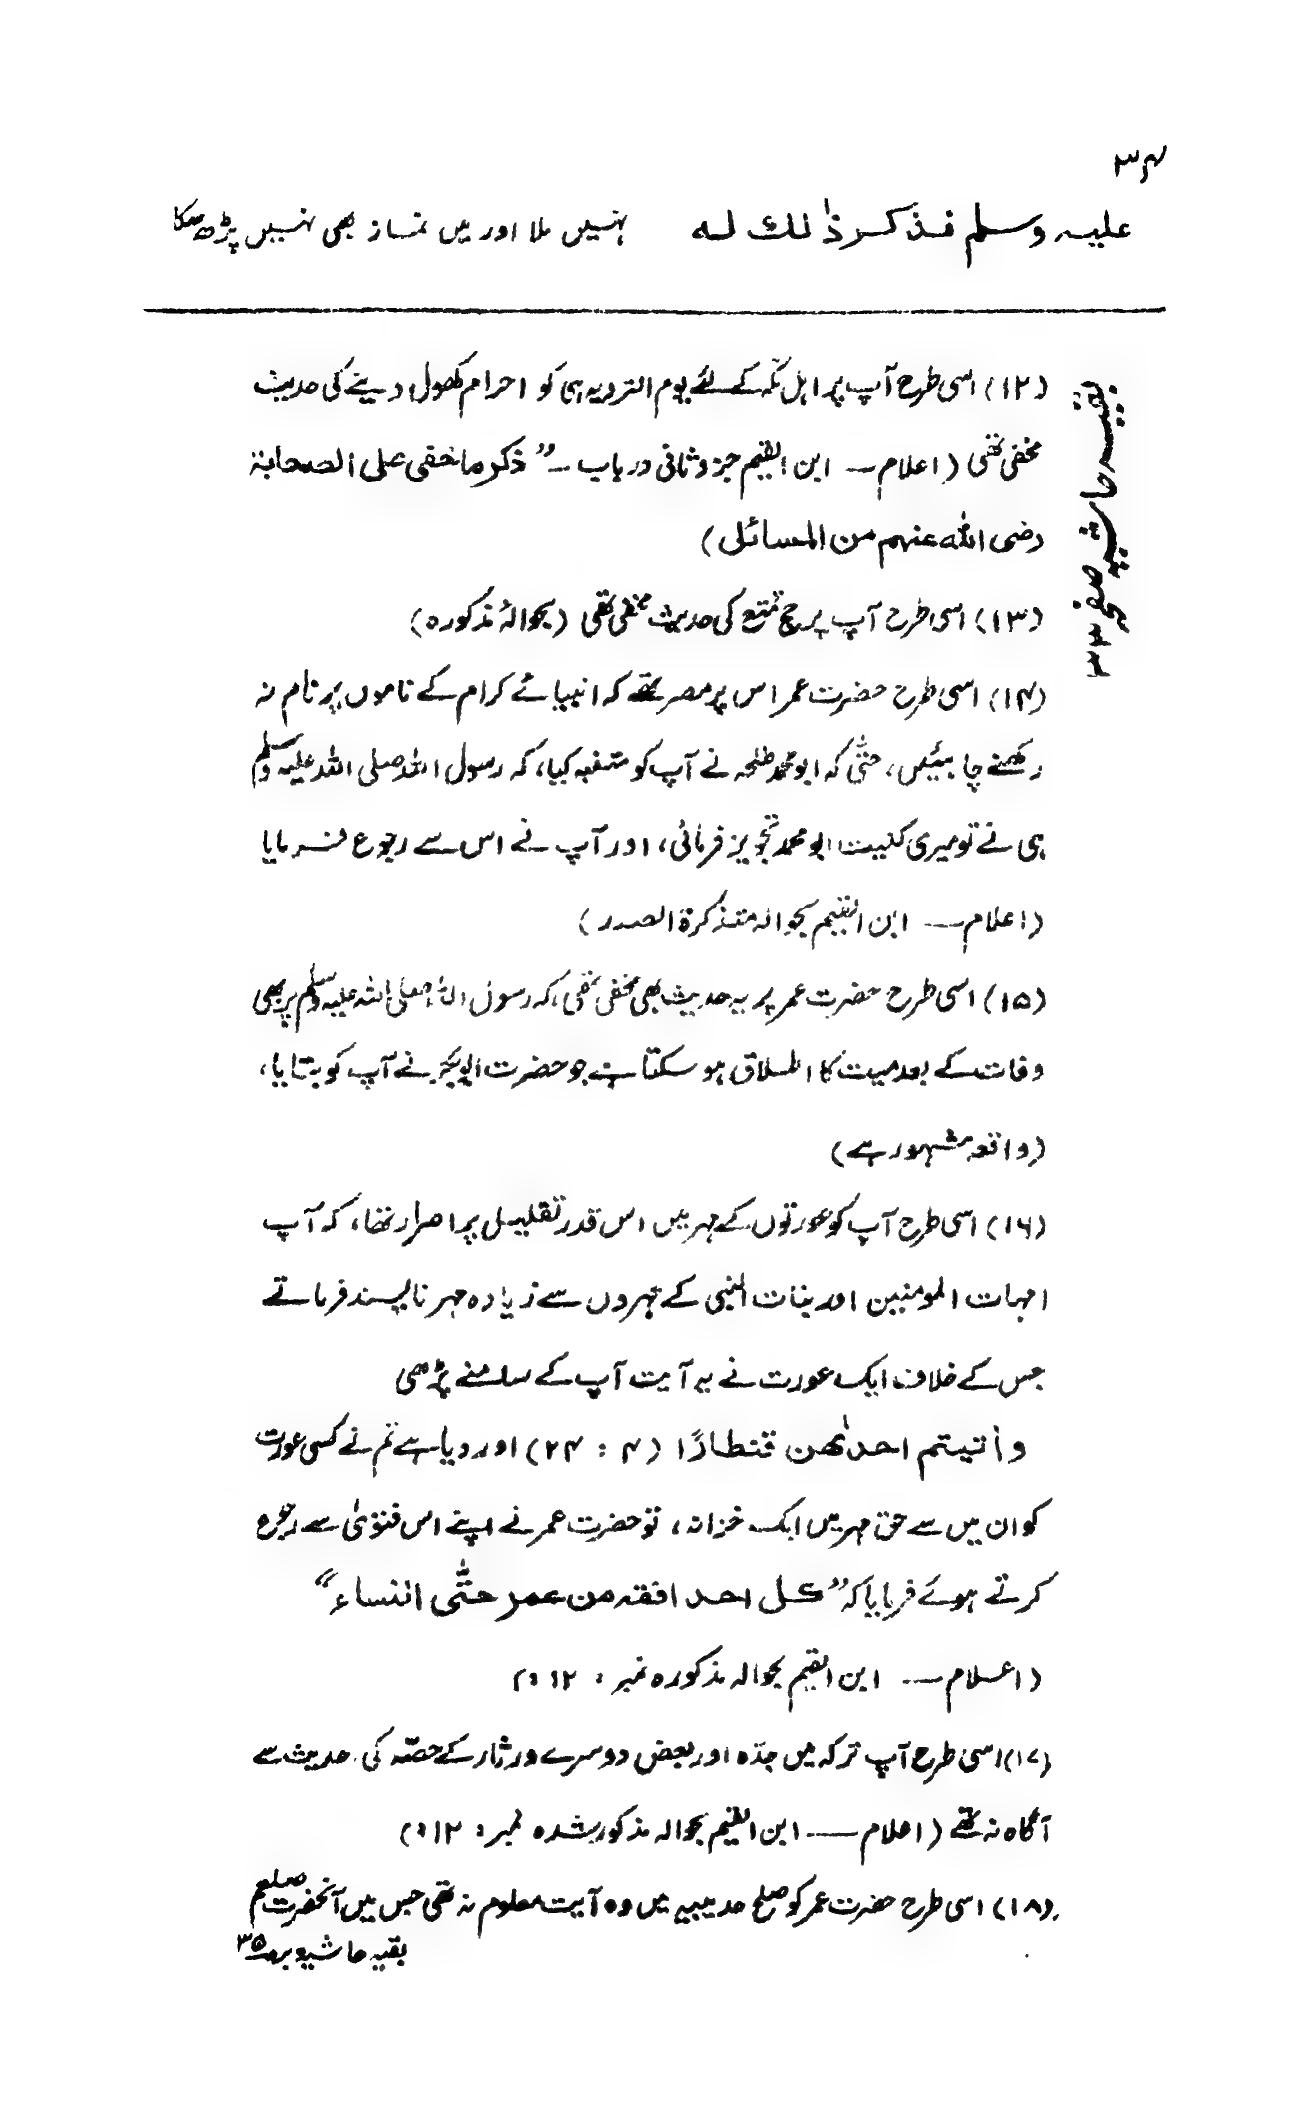 ۳۴
علیہ وسلم فذکر ذٰلك لہ نہیں ملا اور میں نماز بھی نہیں پڑھ سکا
بقیہ حاشیہ صفحہ ۳۳
(۱۲) اسی طرح آپ پر اہل مکہ کے لئے یوم الترویہ ہی کو احرام کھول دینے کی حدیث
مخفی تھی (اعلام — ابن القیم جزو ثانی در باب — ”ذکر ما خفی علی الصحابۃ
رضی اللہ عنہم من المسائل)
(۱۳) اسی طرح آپ پر حج تمتع کی حدیث مخفی تھی (بحوالۂ مذکورہ)
(۱۴) اسی طرح حضرت عمر اس پر مصر تھے کہ انبیائے کرام کے ناموں پر نام نہ
رکھنے چاہئیں، حتّٰی کہ ابو محمد طلحہ نے آپ کو متنبہ کیا، کہ رسول اللہ صلی اللہ علیہ وسلم
ہی نے تو میری کنیت ابو محمد تجویز فرمائی، اور آپ نے اس سے رجوع فرمایا
(اعلام — ابن القیم بحوالہ متذکرۃ الصدر)
(۱۵) اسی طرح حضرت عمر پر یہ حدیث بھی مخفی تھی، کہ رسول اللہ صلی اللہ علیہ وسلم پر بھی
وفات کے بعد میت کا اطلاق ہو سکتا ہے جو حضرت ابوبکر نے آپ کو بتایا،
(واقعہ مشہور ہے)
(۱۶) اسی طرح آپ کو عورتوں کے مہر میں اس قدر تقلیل پر اصرار تھا، کہ آپ
امہات المومنین اور بنات النبی کے مہروں سے زیادہ مہر ناپسند فرماتے
جس کے خلاف ایک عورت نے یہ آیت آپ کے سامنے پڑھی
وأتیتم احدٰىھن قنطارًا (۴ : ۲۴) اور دیا ہے تم نے کسی عورت
کو ان میں سے حق مہر میں ایک خزانہ، تو حضرت عمر نے اپنے اس فتویٰ سے رجوع
کرتے ہوئے فرمایا کہ ”کل احد افقہ من عمر حتّٰی النساء“
(اعلام — ابن القیم بحوالہ مذکورہ نمبر : ۱۲ :)
(۱۷) اسی طرح آپ ترکہ میں جدّہ اور بعض دوسرے ورثار کے حصّہ کی حدیث سے
آگاہ نہ تھے (اعلام — ابن القیم بحوالہ مذکور شدہ نمبر : ۱۲ :)
(۱۸) اسی طرح حضرت عمر کو صلح حدیبیہ میں وہ آیت معلوم نہ تھی جس میں آنحضرت صلعم
بقیہ حاشیہ بر صـ ۳۵